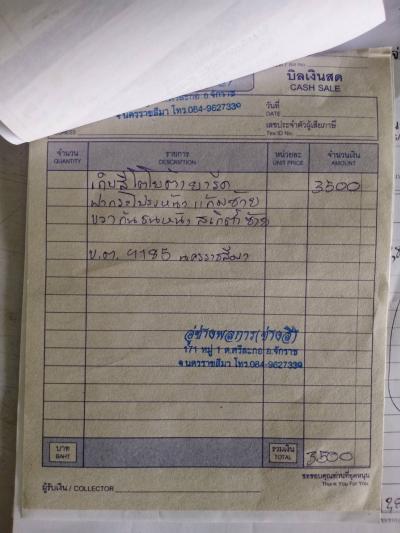 บิลเงินสด
CASH SALE
ต.ศรีละกอ อ.จักราช
จ.นครราชสีมา โทร.084-9627339
วันที่
DATE
เลขประจำตัวผู้เสียภาษี
Tax ID No.
ADDRESS
จำนวน รายการ หน่วยละ จำนวนเงิน
QUANTITY DESCRIPTION UNIT PRICE AMOUNT
เก็บสีโตโยต้า ยารีส 3500
ฝากระโปรงหน้า แก้มซ้าย
ขวา กันชนหน้า สเกิร์ตซ้าย
นครราชสีมา
อู่ช่างพลการ(ช่างสี)
171 หมู่ 1 ต.ศรีละกอ อ.จักราช
จ.นครราชสีมา โทร.084-9627339
บาท รวมเงิน 3500
BAHT TOTAL
ขอขอบคุณท่านที่อุดหนุน
Thank You For You
ผู้รับเงิน / COLLECTOR